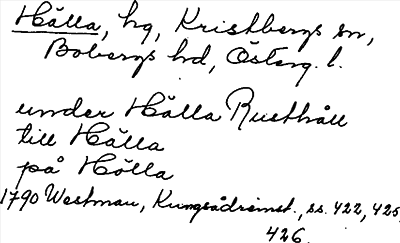 Hälla, hg, Kristbergs sn,
Bobergs hd, Österg. l.
under Hälla Rusthåll
till Hälla
på Hälla
1790 Westman, Kungsådreinst., ss. 422, 425,
426.